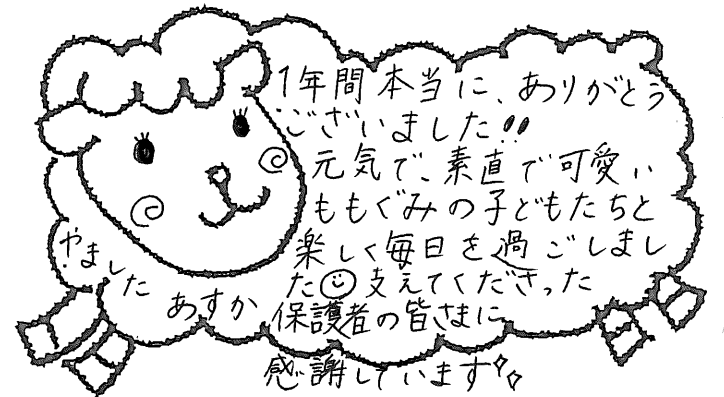 1年間本当に、ありがとう
ございました!!
元気で、素直で可愛い
ももぐみの子どもたちと
楽しく毎日を過ごしまし
た☺支えてくださった
保護者の皆さまに
感謝しています
やました
あすか